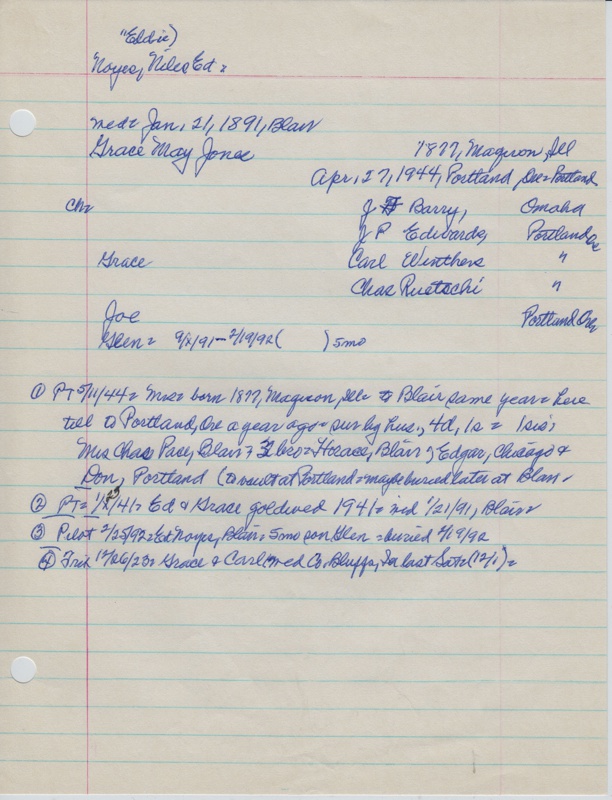 "Eddie)
Noyes, Niles Ed =
med= Jan, 21, 1891, Blair
Grace May Jones 1877, Magnon, Ill
Apr, 27, 1944, Portland Ore = Portland
Ch= J Barry, Omaha
J P Edwards, Portland Ore
Grace Carl Winthers "
Chas Ruetschi "
Joe Portland Ore
Glen = 9/x/91 - 2/19/92 ( ) 5mo
① PT 5/11/44 = Mrs = born 1877, Magnon, Ill = to Blair same year = here
till to Portland, Ore a year ago = sur by hus, 4d, 1s = 1sis;
Mrs Chas Pace, Blair & 3 bros = Horace, Blair & Edgar, Chicago &
Don, Portland (to vault at Portland = maybe buried later at Blair =
② PT = 1/23/41 = Ed & Grace gold wed 1941 = md 1/21/91, Blair =
③ Pilot 2/25/92 = Ed Noyes, Blair = 5mo son Glen = buried 2/19/92
④ Trib 12/06/23 = Grace & Carl med Co. Bluffs, Ia last Sat = (12/1) =